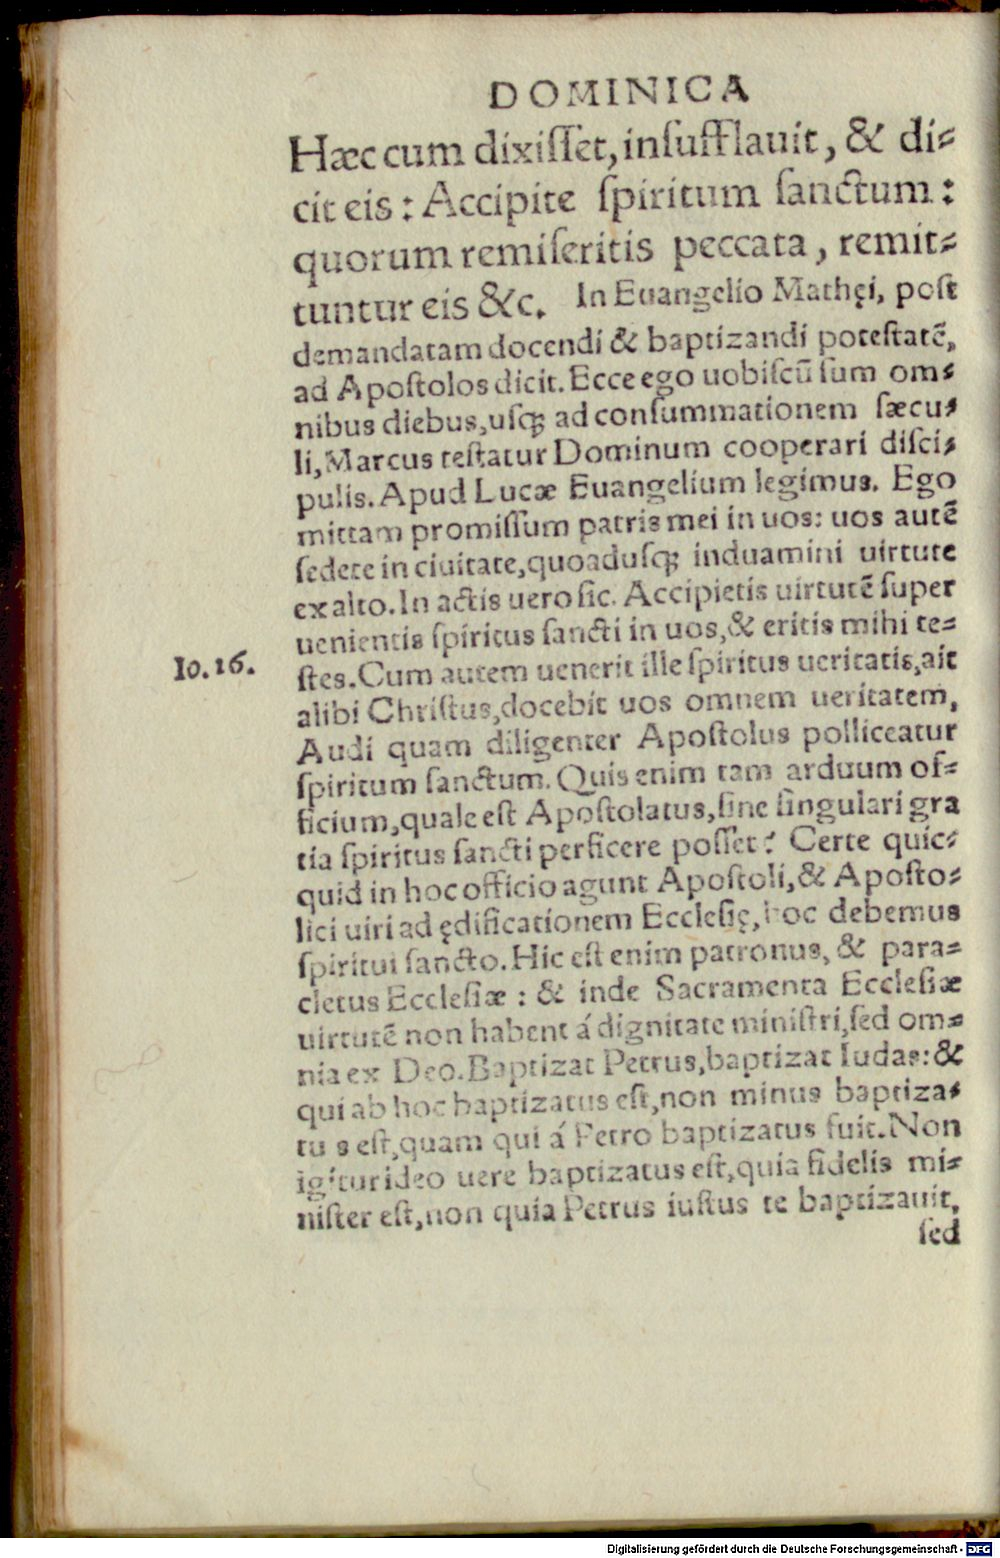 DOMINICA
Hæc cum dixiſſet, inſufflauit, & di⸗
cit eis : Accipite ſpiritum ſanctum :
quorum remiſeritis peccata, remit⸗
tuntur eis &c. In Euangelio Mathęi, poſt
demandatam docendi & baptizandi poteſtatē,
ad Apoſtolos dicit. Ecce ego uobiſcū ſum om⸗
nibus diebus, uſqꝫ ad conſummationem ſæcu⸗
li, Marcus teſtatur Dominum cooperari diſci⸗
pulis. Apud Lucæ Euangelium legimus. Ego
mittam promiſſum patris mei in uos: uos autē
ſedete in ciuitate, quoaduſqꝫ induamini uirtute
ex alto. In actis uero ſic. Accipietis uirtutē ſuper
uenientis ſpiritus ſancti in uos, & eritis mihi te⸗
Io. 16.
ſtes. Cum autem uenerit ille ſpiritus ueritatis, ait
alibi Chriſtus, docebit uos omnem ueritatem,
Audi quam diligenter Apoſtolus polliceatur
ſpiritum ſanctum. Quis enim tam arduum of⸗
ficium, quale eſt Apoſtolatus, ſine ſingulari gra
tia ſpiritus ſancti perficere poſſet? Certe quic⸗
quid in hoc officio agunt Apoſtoli, & Apoſto⸗
lici uiri ad ędificationem Eccleſię, hoc debemus
ſpiritui ſancto. Hic eſt enim patronus, & para⸗
cletus Eccleſiæ : & inde Sacramenta Eccleſiæ
uirtutē non habent á dignitate miniſtri, ſed om⸗
nia ex Deo. Baptizat Petrus, baptizat Iudas: &
qui ab hoc baptizatus eſt, non minus baptiza⸗
tu s eſt, quam qui á Petro baptizatus fuit. Non
igitur ideo uere baptizatus eſt, quia fidelis mi⸗
niſter eſt, non quia Petrus iuſtus te baptizauit,
ſed
Digitalisierung gefördert durch die Deutsche Forschungsgemeinschaft - DFG